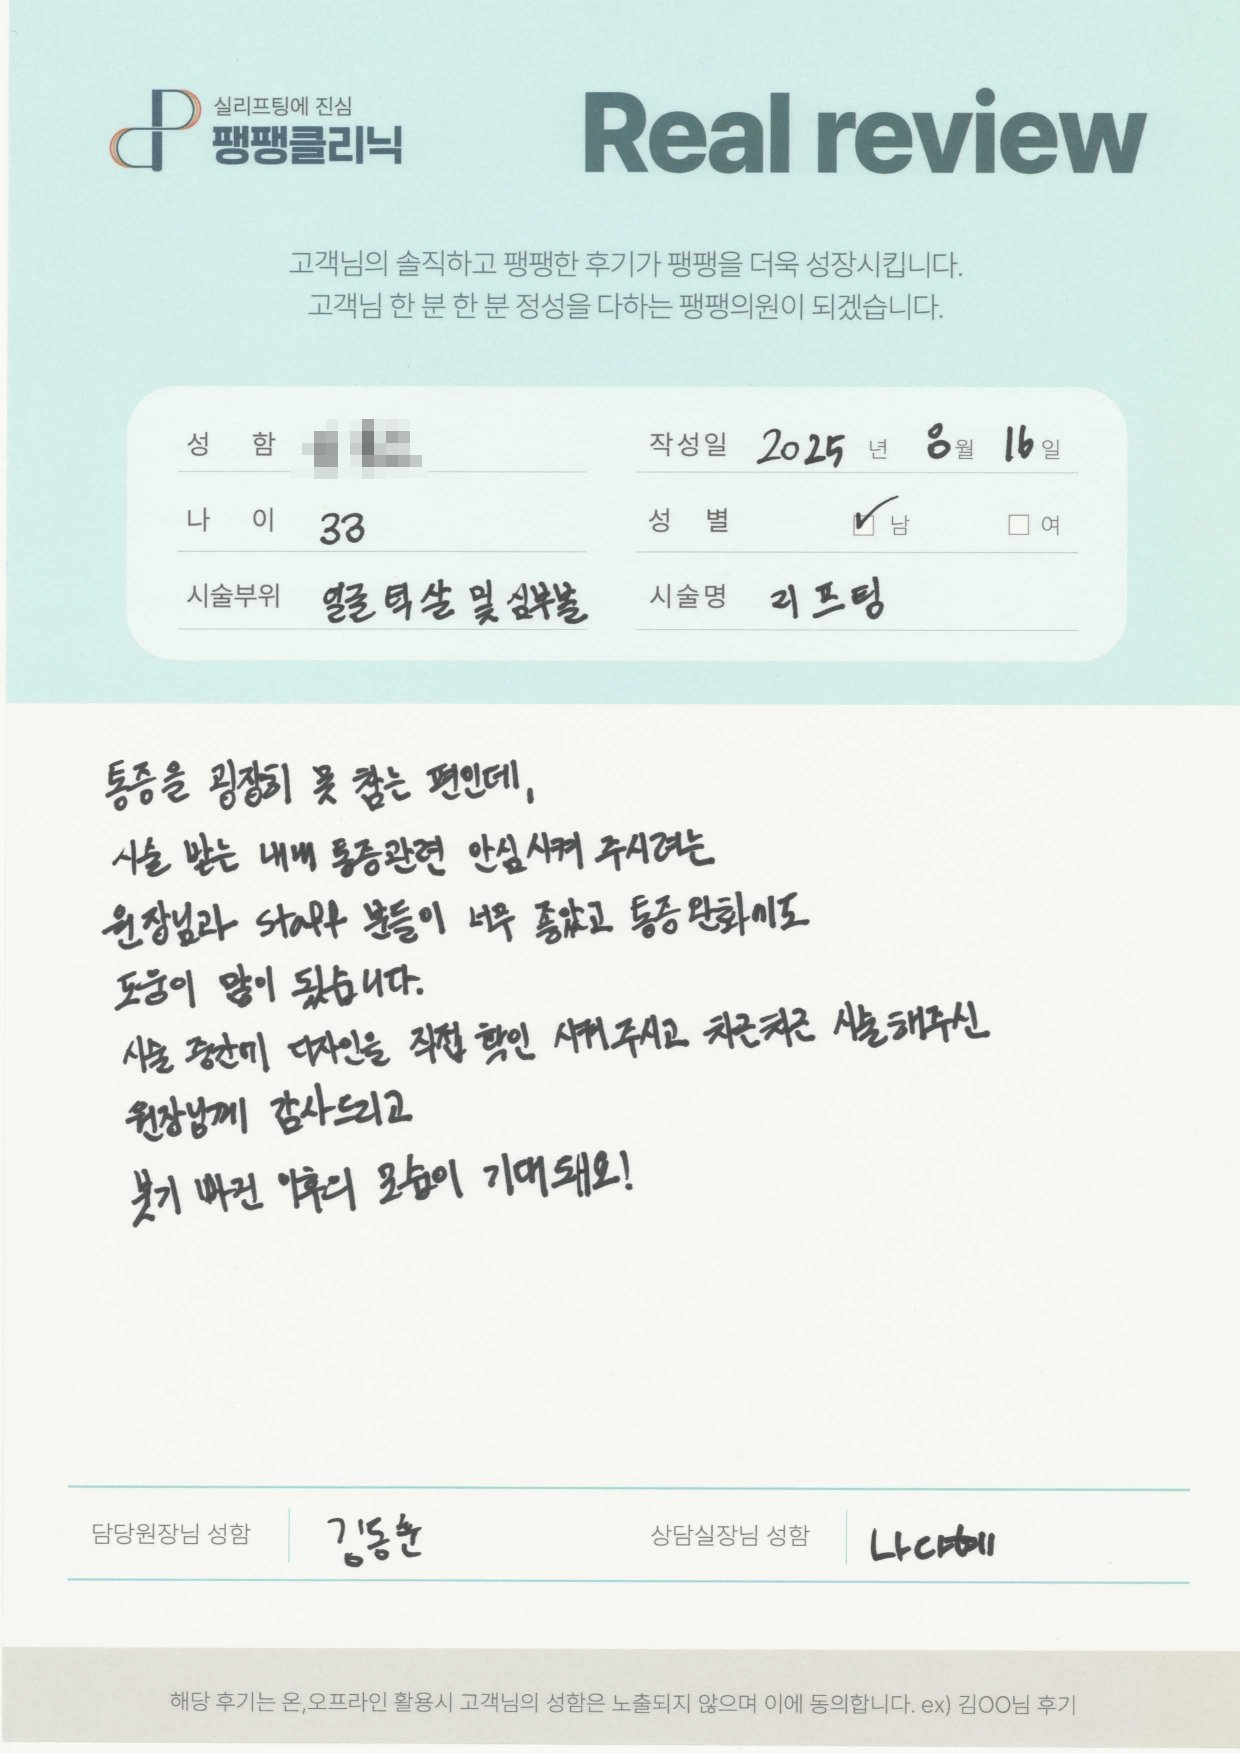 실리프팅에 진심
팽팽클리닉
Real review
고객님의 솔직하고 팽팽한 후기가 팽팽을 더욱 성장시킵니다.
고객님 한 분 한 분 정성을 다하는 팽팽의원이 되겠습니다.
성 함
작성일 2025 년 8월 16일
나 이 33
성 별 남 여
시술부위 얼굴 턱살 및 심부볼
시술명 리프팅
통증을 굉장히 못 참는 편인데,
시술 받는 내내 통증관련 안심시켜 주시려는
원장님과 staff 분들이 너무 좋았고 통증완화에도
도움이 많이 됬습니다.
시술 중간에 디자인을 직접 확인 시켜주시고 차근차근 시술해주신
원장님께 감사드리고
붓기 빠진 이후의 모습이 기대돼요!
담당원장님 성함 김동훈
상담실장님 성함 나다혜
해당 후기는 온,오프라인 활용시 고객님의 성함은 노출되지 않으며 이에 동의합니다. ex) 김OO님 후기